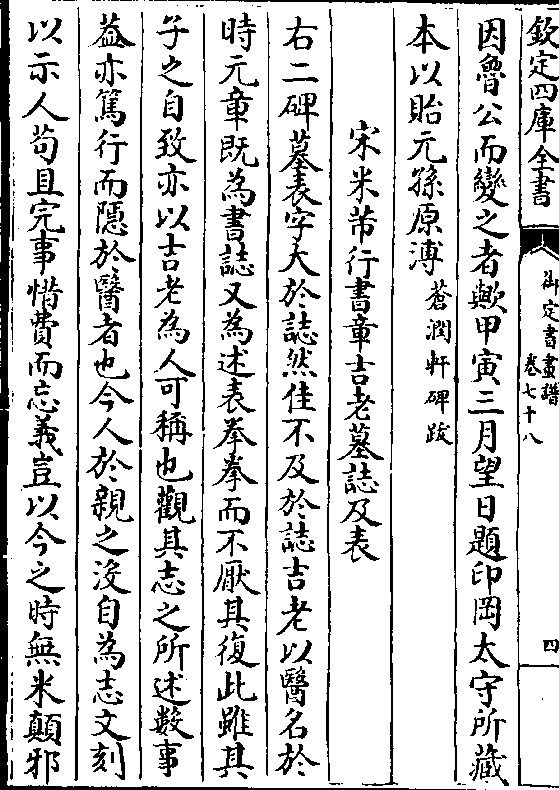 欽定四庫全書
御定書畫譜
卷七十八
四
因魯公而變之者歟甲寅三月望日題印岡太守所藏
本以貽元孫原溥蒼潤軒碑跋
宋米芾行書章吉老墓誌及表
右二碑墓表字大於誌然佳不及於誌吉老以醫名於
時元章既為書誌又為述表拳拳而不厭其復此雖其
子之自致亦以吉老為人可稱也觀其志之所述數事
葢亦篤行而隱於醫者也今人於親之沒自為志文刻
以示人苟且完事惜費而忘義豈以今之時無米顛邪